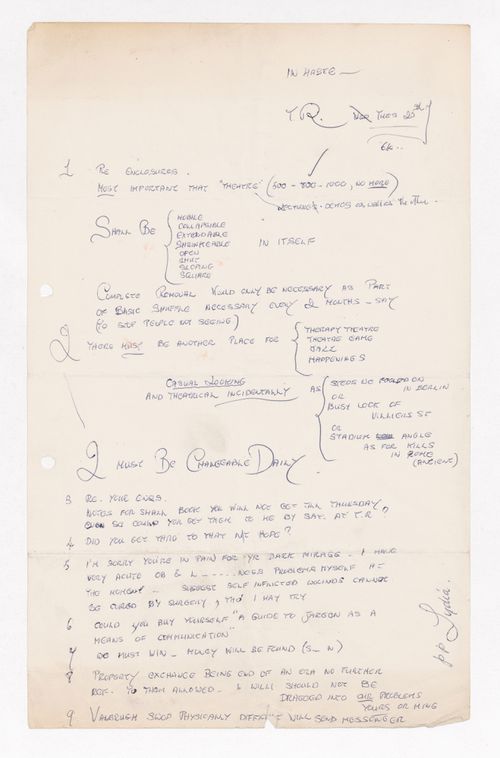 IN HASTE —
T.R. TUES 25th
1 RE ENCLOSURES.
MOST IMPORTANT THAT "THEATRE" (500 - 800 - 1000, NO MORE)
SHALL BE
MOBILE
COLLAPSIBLE
EXTENDABLE
SHRINKABLE
OPEN
SHUT
SQUARE
IN ITSELF
COMPLETE REMOVAL WOULD ONLY BE NECESSARY AS PART
OF BASIC SHUFFLE NECESSARY EVERY 2 MONTHS - SAY
(TO STOP PEOPLE NOT SEEING)
2 THERE MUST BE ANOTHER PLACE FOR
THERAPY THEATRE
THEATRE GAME
JAZZ
HAPPENINGS
CASUAL LOOKING
AND THEATRICAL INCIDENTALLY
AS
IN BERLIN
OR
BUSY LOCK OF
VILLIERS ST
OR
STADIUM ANGLE
AS FOR KILLS
IN ROME
(ANCIENT)
2 MUST BE CHANGEABLE DAILY
3 RE. YOUR ENQS.
NOTES FOR SMALL BOOK YOU WILL NOT GET TILL THURSDAY,
EVEN SO COULD YOU GET THEM TO ME BY SAT. AT T.R.
4 DID YOU GET THRO TO THAT MT HOPE?
5 I'M SORRY YOU'RE IN PAIN FOR YR DARK MIRAGE. I HAVE
VERY ACUTE OB & L ..... NESS PROBLEMS MYSELF AT
THE MOMENT .. SUGGEST SELF INFLICTED WOUNDS CANNOT
BE CURED BY SURGERY, THO' I MAY TRY
6 COULD YOU BUY YOURSELF "A GUIDE TO JARGON AS A
MEANS OF COMMUNICATION"
7 WE MUST WIN - MONEY WILL BE FOUND (S - N)
8 PROPERTY EXCHANGE BEING END OF AN ERA NO FURTHER
REF. TO THEM ALLOWED. & WILLI SHOULD NOT BE
DRAGGED INTO OUR PROBLEMS
YOURS OR MINE
9 SWOP PHYSICALLY DIFFICULT WILL SEND MESSENGER
pp Lydia.